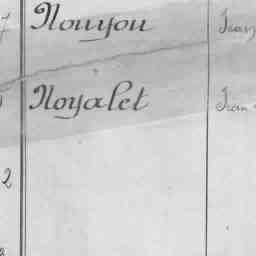 7 Nouyou Jean
Noyalet Jean
2